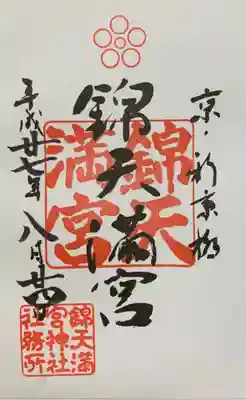 京・新京極
錦天満宮
錦天
満宮
平成廿七年八月廿四日
錦天満
宮神社
社務所